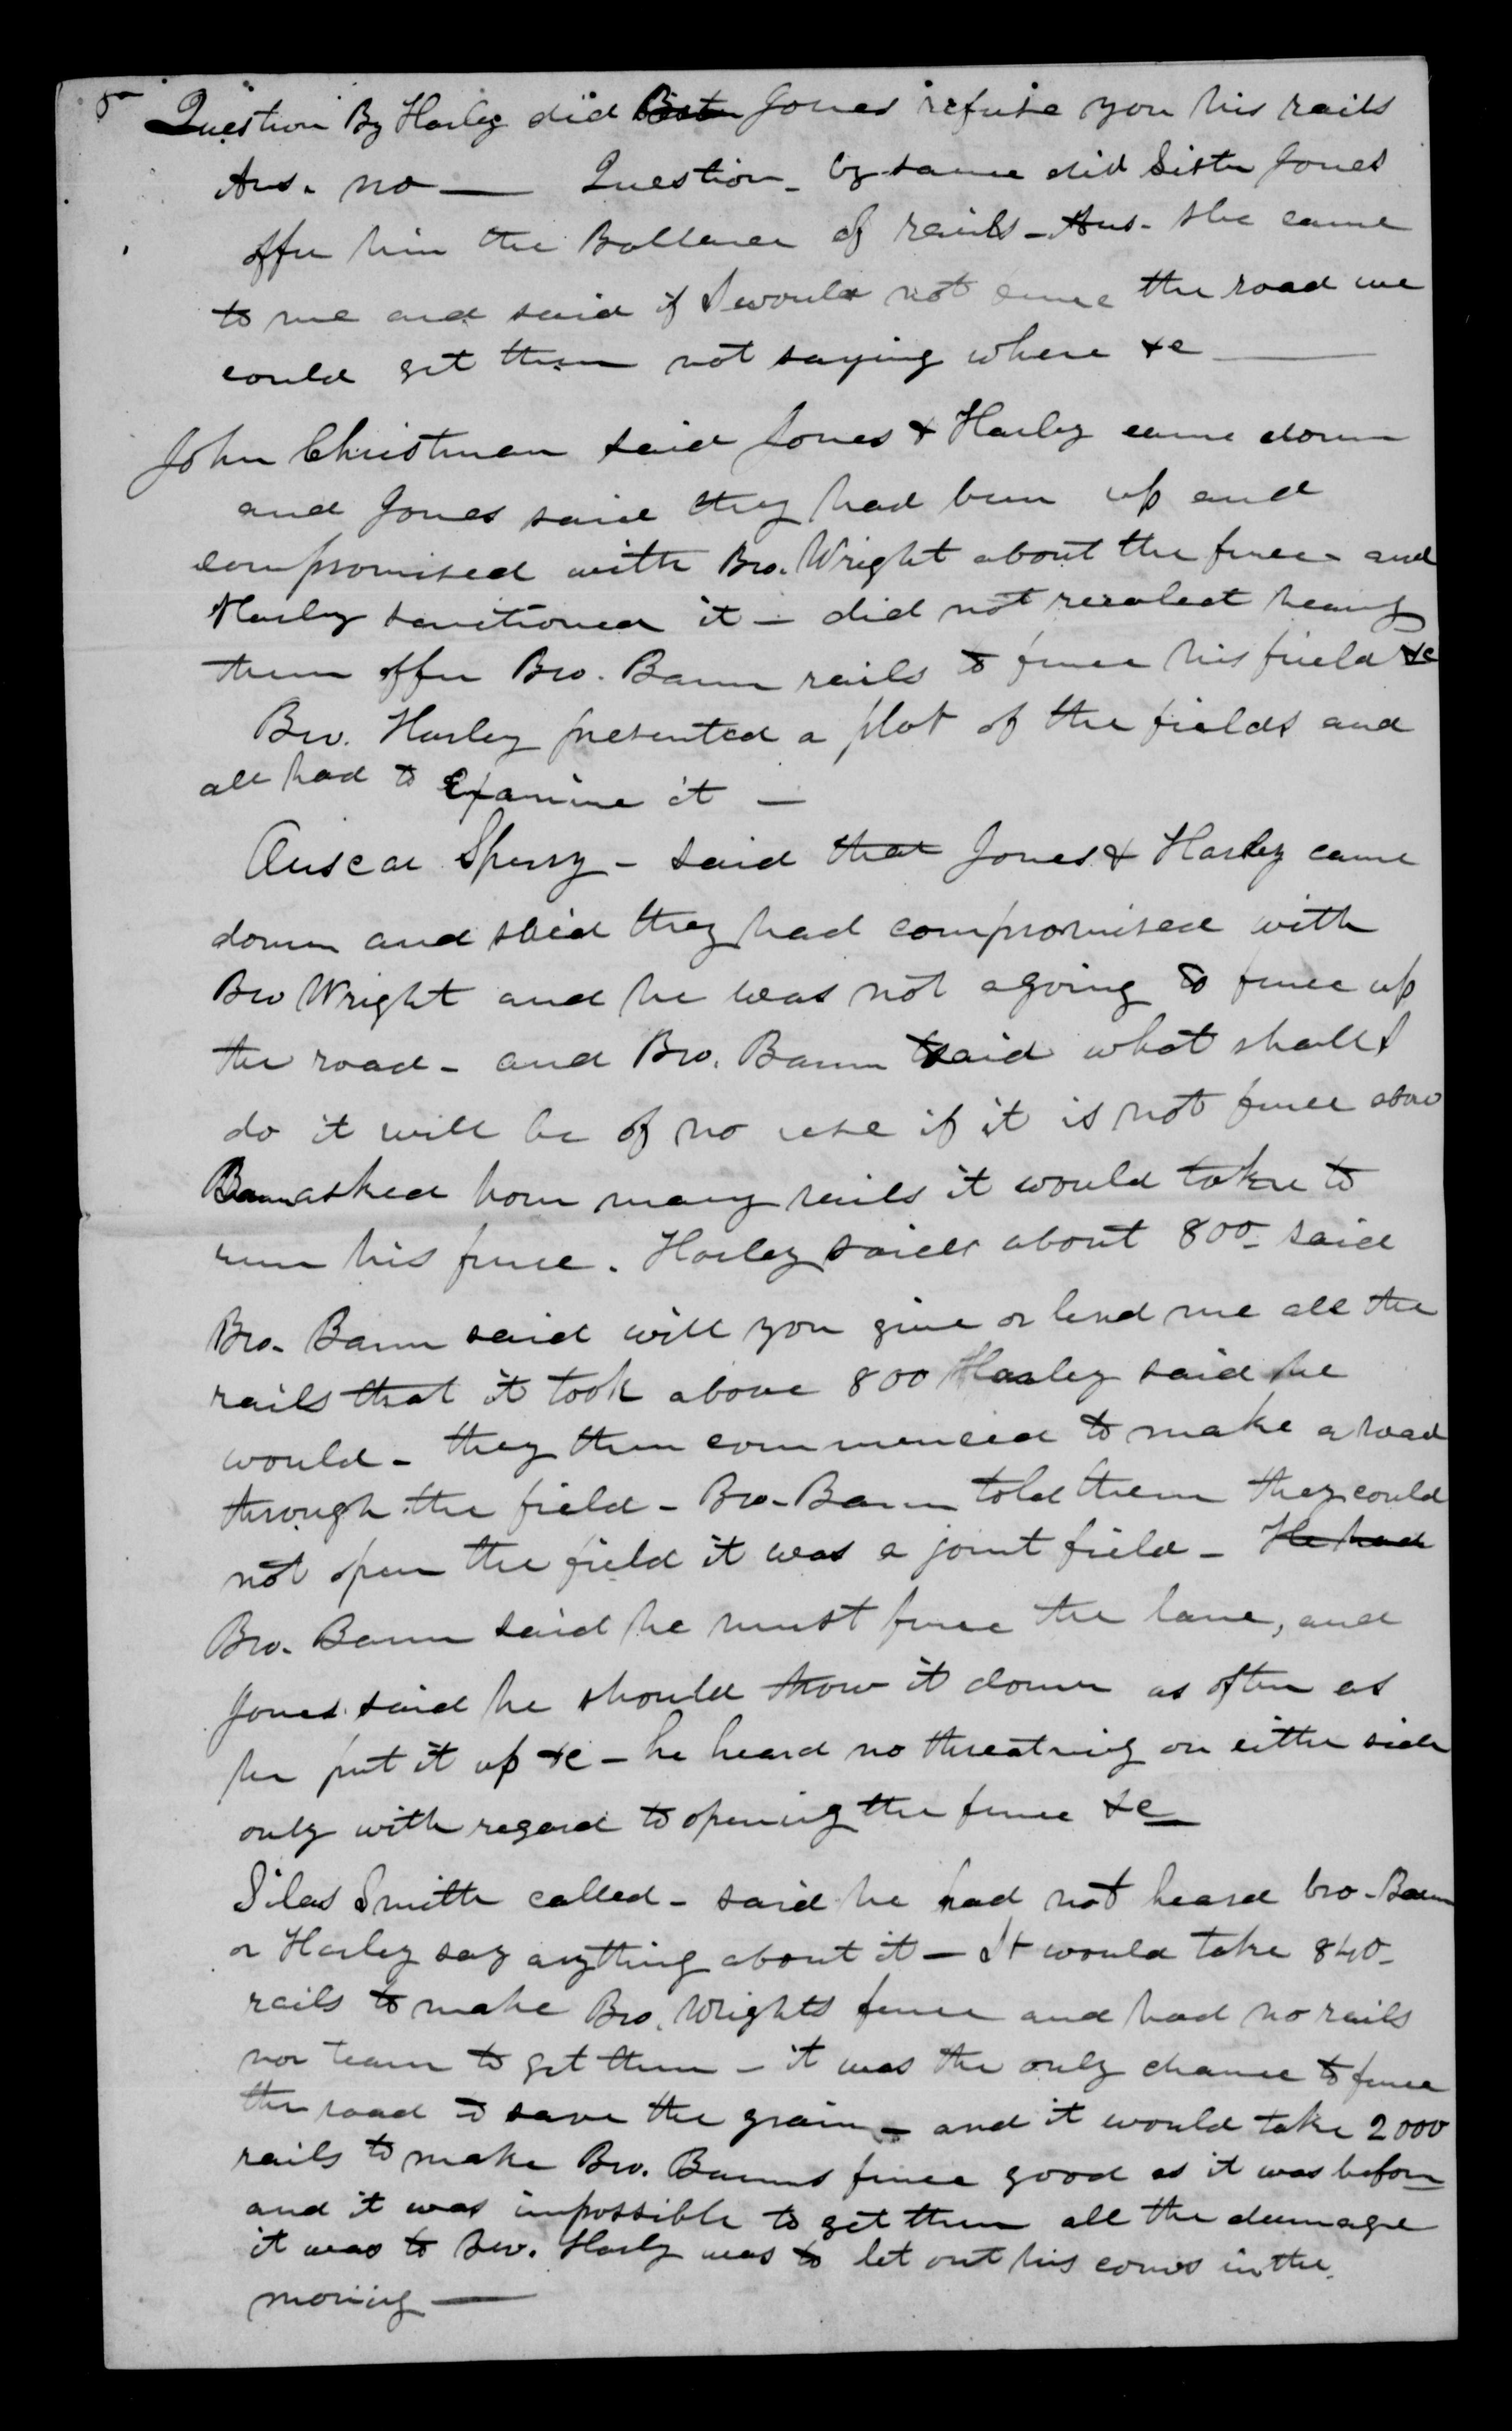 5 Question By Harley did Sister Jones refuse you his rails
Ans. no — Question - by same did Sister Jones
offer him the Ballance of rails - Ans - she came
to me and said if I would not fence the road we
could get them not saying where &c —
John Christman said Jones & Harley came down
and Jones said they had been up and
compromised with Bro. Wright about the fence - and
Harley sanctioned it — did not recolect hearing
them offer Bro. Baum rails to fence his field &c
Bro. Harley presented a plot of the fields and
all had to Examine it —
Sperry - said that Jones & Harley came
down and said they had compromised with
Bro Wright and he was not agoing to fence up
the road - and Bro. Baum said what shall I
do it will be of no use if it is not fence
Baum asked how many rails it would take to
run his fence. Harley said about 800 - said
Bro. Baum said will you give or lend me all the
rails that it took above 800 Harley said he
would - they then commenced to make a road
through the field - Bro. Baum told them they could
not open the field it was a joint field - He had
Bro. Baum said he must fence the lane, and
Jones said he should throw it down as often as
he put it up &c - he heard no threatning on either side
only with regard to opening the fence &c
Silas Smith called - said he had not heard bro - Baum
or Harley say anything about it — It would take 840 -
rails to make Bro. Wrights fence and had no rails
nor team to get them - it was the only chance to fence
the road to save the grain - and it would take 2000
rails to make Bro. Baums fence good as it was before
and it was impossible to get them all the damage
it was to bro. Harly was to let out his cows in the
moring —